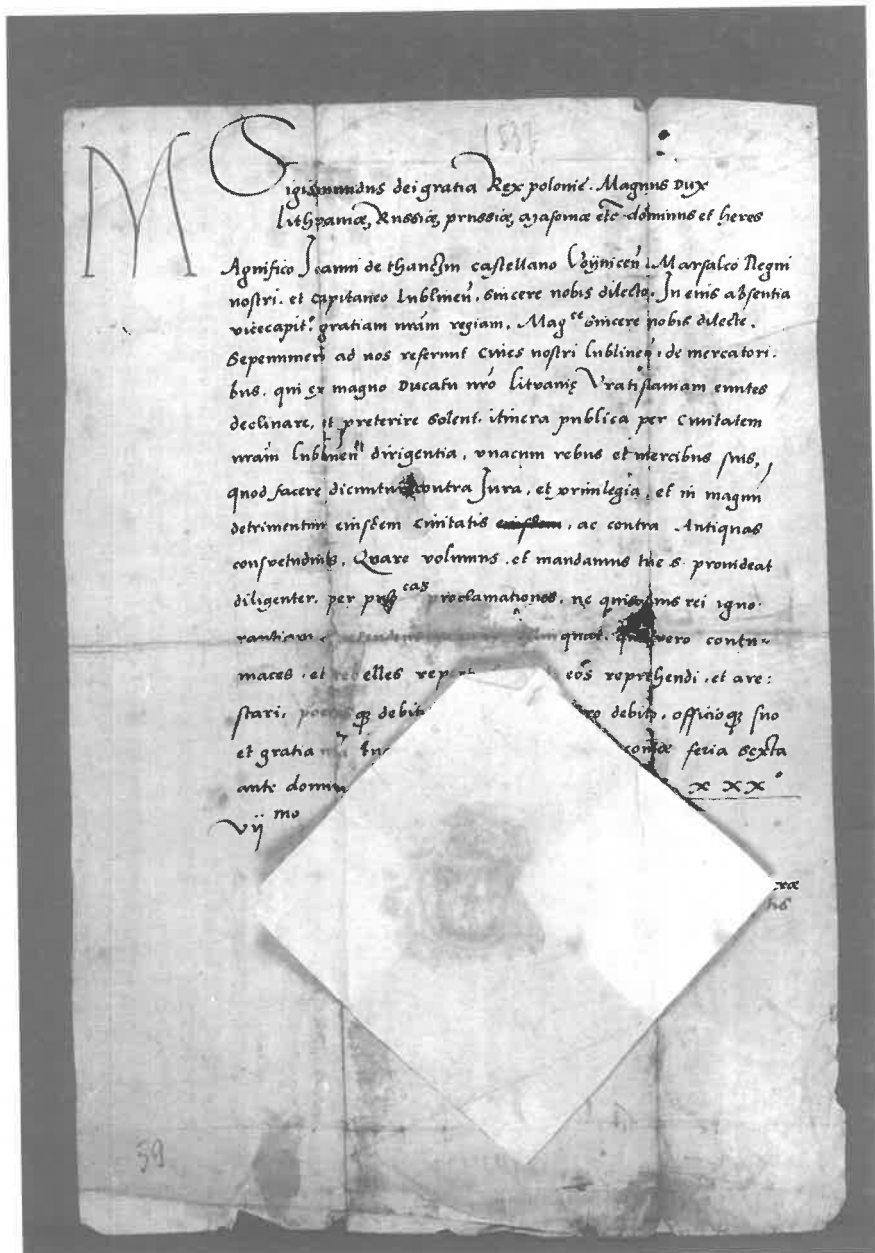 1537
Sigismundus dei gratia Rex polonie. Magnus Dux
lithvaniæ, Russiæ, prussiæ, masoviæ etc dominus et heres
Magnifico Joanni de thanczin castellano Voijnicen̄. Marsalco Regni
nostri. et capitaneo lublinen̄, sincere nobis dilecto. In eius absentia
vicecapit.º gratiam nrām regiam. Mag.ce sincere nobis dilecte.
Sepenumero ad nos referunt cives nostri lublinen̄, de mercatori.
bus. qui ex magno Ducatu nrō litvanię Vratislaviam euntes
declinare, et preterire solent. itinera publica per civitatem
nrām lublinen̄ dirigentia, unacum rebus et mercibus suis,
quod facere dicuntur contra Jura, et privilegia, et in magnū
detrimentum eiusdem civitatis eiusdem, ac contra Antiquas
consvetudines. Quare volumus. et mandamus tue s. provideat
diligenter. per cas proclamationes. ne rei igno.
rantiam vero contu-
maces. et rebelles eos reprehendi. et are:
stari. debit debito. officioq₃ suo
et gratia feria sexta
ante x xx º
vij mo
59